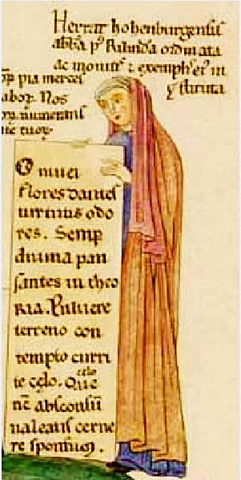 Herrat hohenburgensis
abba p9 Rilinda ordinata
ac monitis 7 exemplis ei9 in
stituta
pia merces
labor. Nos
numerans
tuos
O nivei
flores dantes
virtutis odo
res. Semp
divina pau
santes in theo
ria. Pulvere
terreno con
tempto curri
te celo. Que
celo
nc absconsu
valeatis cerne
re sponsum.